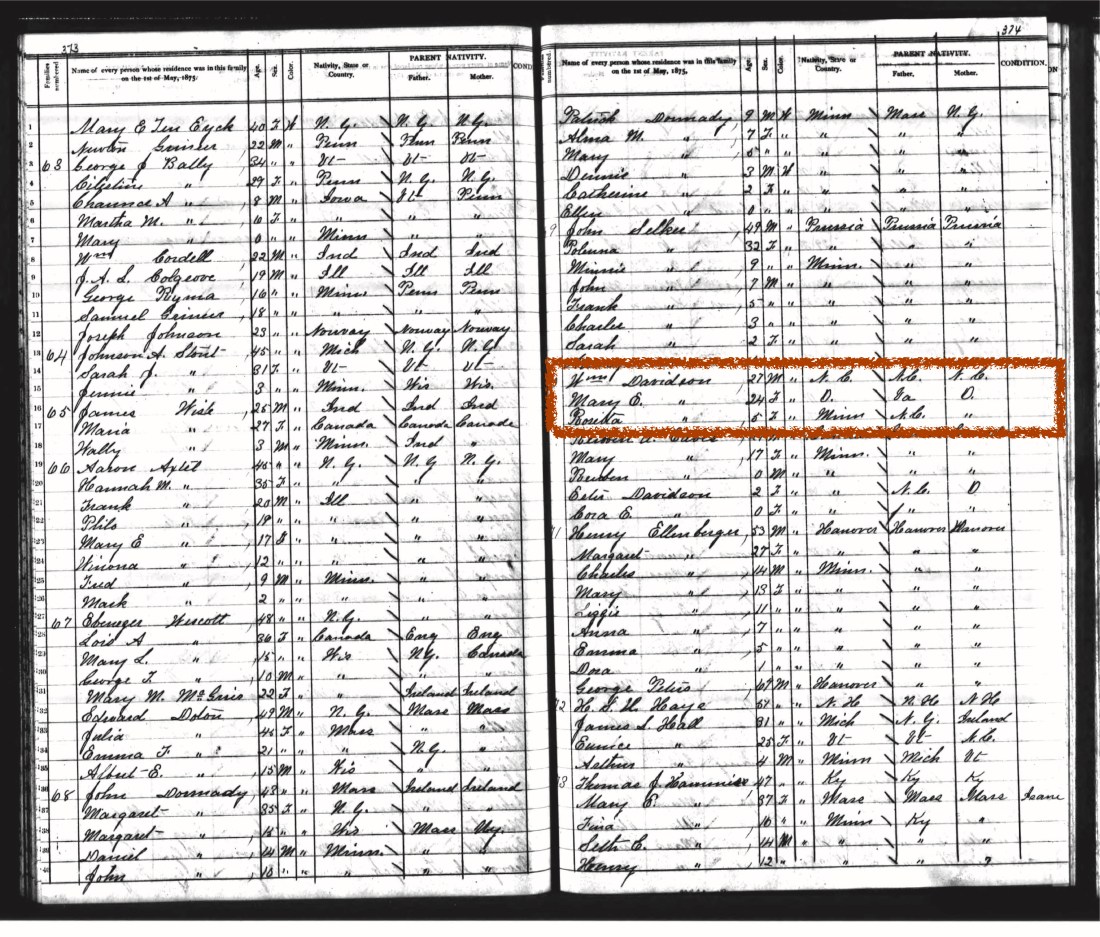 373
Families numbered.
Name of every person whose residence was in this family on the 1st of May, 1875.
Age.
Sex.
Color.
Nativity, State or Country.
PARENT NATIVITY.
Father.
Mother.
COND
1 Mary E Ten Eyck 40 F W N.Y. N.Y. N.Y.
2 Newton 22 M " Penn Penn Penn
3 63 George J Bally 34 " " Vt Vt Vt
4 " 29 F " Penn N.Y. N.Y.
5 A " 8 M " Iowa Vt Penn
6 Martha M. " 6 F " " " "
7 Mary " 0 " " Minn " "
8 Wm Cordell 22 M " Ind Ind Ind
9 J. A. L. Colgrove 19 M " Ill Ill Ill
10 George Ryma 16 " " Minn Penn Penn
11 Samuel 18 " " " " "
12 Joseph Johnson 23 " " Norway Norway Norway
13 64 Johnson A. Stout 45 " " Mich N.Y. N.Y.
14 Sarah J. " 31 F " Vt Vt Vt
15 Jennie " 3 " " Minn. Wis Wis.
16 65 James Wisk 25 M " Ind Ind Ind
17 Maria " 27 F " Canada Canada Canada
18 Wally " 3 M " Minn. Ind "
19 66 Aaron 45 " " N.Y. N.Y N.Y.
20 Hannah M. " 35 F " " " "
21 Frank " 20 M " Ill " "
22 Philo " 18 " " " " "
23 Mary E " 17 F " " " "
24 Winona " 12 " " " " "
25 Fred " 9 M " Minn. " "
26 Mark " 2 " " " " "
27 67 Ebenezer Wescott 48 " " N.Y. " "
28 Lois A " 36 F " Canada Eng Eng
29 Mary L. " 15 " " Wis N.Y. Canada
30 George F. " 10 M " " " "
31 Mary M. 22 F " " Ireland Ireland
32 Edward Doton 49 M " N.Y. Mass Mass
33 Julia " 45 F " Mass " "
34 Emma F. " 21 " " " N.Y. "
35 Albert E. " 15 M " Wis " "
36 68 John Dormady 43 " " Mass Ireland Ireland
37 Margaret " 35 F " N.Y. " "
38 Margaret " 15 " " Wis Mass Ny.
39 Daniel " 14 M " Minn. " "
40 John " 10 " " " " "
374
numbered.
Name of every person whose residence was in this family on the 1st of May, 1875.
Age.
Sex.
Color.
Nativity, State or Country.
PARENT NATIVITY.
Father.
Mother.
CONDITION.
ON
Patrick Dormady 9 M W Minn Mass N.Y.
Alma M. " 7 F " " " "
Mary " 5 " " " " "
Dennis " 3 M W " " "
Catherine " 2 F " " " "
Ellen " 0 " " " " "
9 John Selker 49 M " Prussia Prussia Prussia
" 32 F " " " "
Minnie " 9 " " Minn. " "
John " 7 M " " " "
Frank " 5 " " " " "
Charles " 3 " " " " "
Sarah " 2 F " " " "
Wm Davidson 27 M " N.C. N.C. N.C.
Mary E. " 24 F " O. O.
Rosetta " 5 F " Minn N.C. "
Mary " 17 F " Minn. " "
Reuben " 0 M " " " "
Davidson 2 F " " N.C. O
Cora E. " 0 F " " " "
71 Henry Ellenberger 53 M " Hanover Hanover Hanover
Margaret " 27 F " " " "
Charles " 14 M " Minn. " "
Mary " 13 F " " " "
Liggie " 11 " " " " "
Anna " 7 " " " " "
Emma " 5 " " " " "
Dora " 1 " " " " "
George Peters 67 M " Hanover " "
72 H. S. H. Hays 51 " " N.H N.H N H
James S. Hall 31 " " Mich N.Y. Ireland
Eunice " 25 F " Vt Vt N.C.
Arthur " 4 M " Minn Mich Vt
73 Thomas J. 47 " " Ky Ky Ky
Mary E. " 37 F " Mass Mass Mass Isane
Tina " 16 " " Minn Ky "
Seth C. " 14 M " " " "
Henry " 12 " " " " "